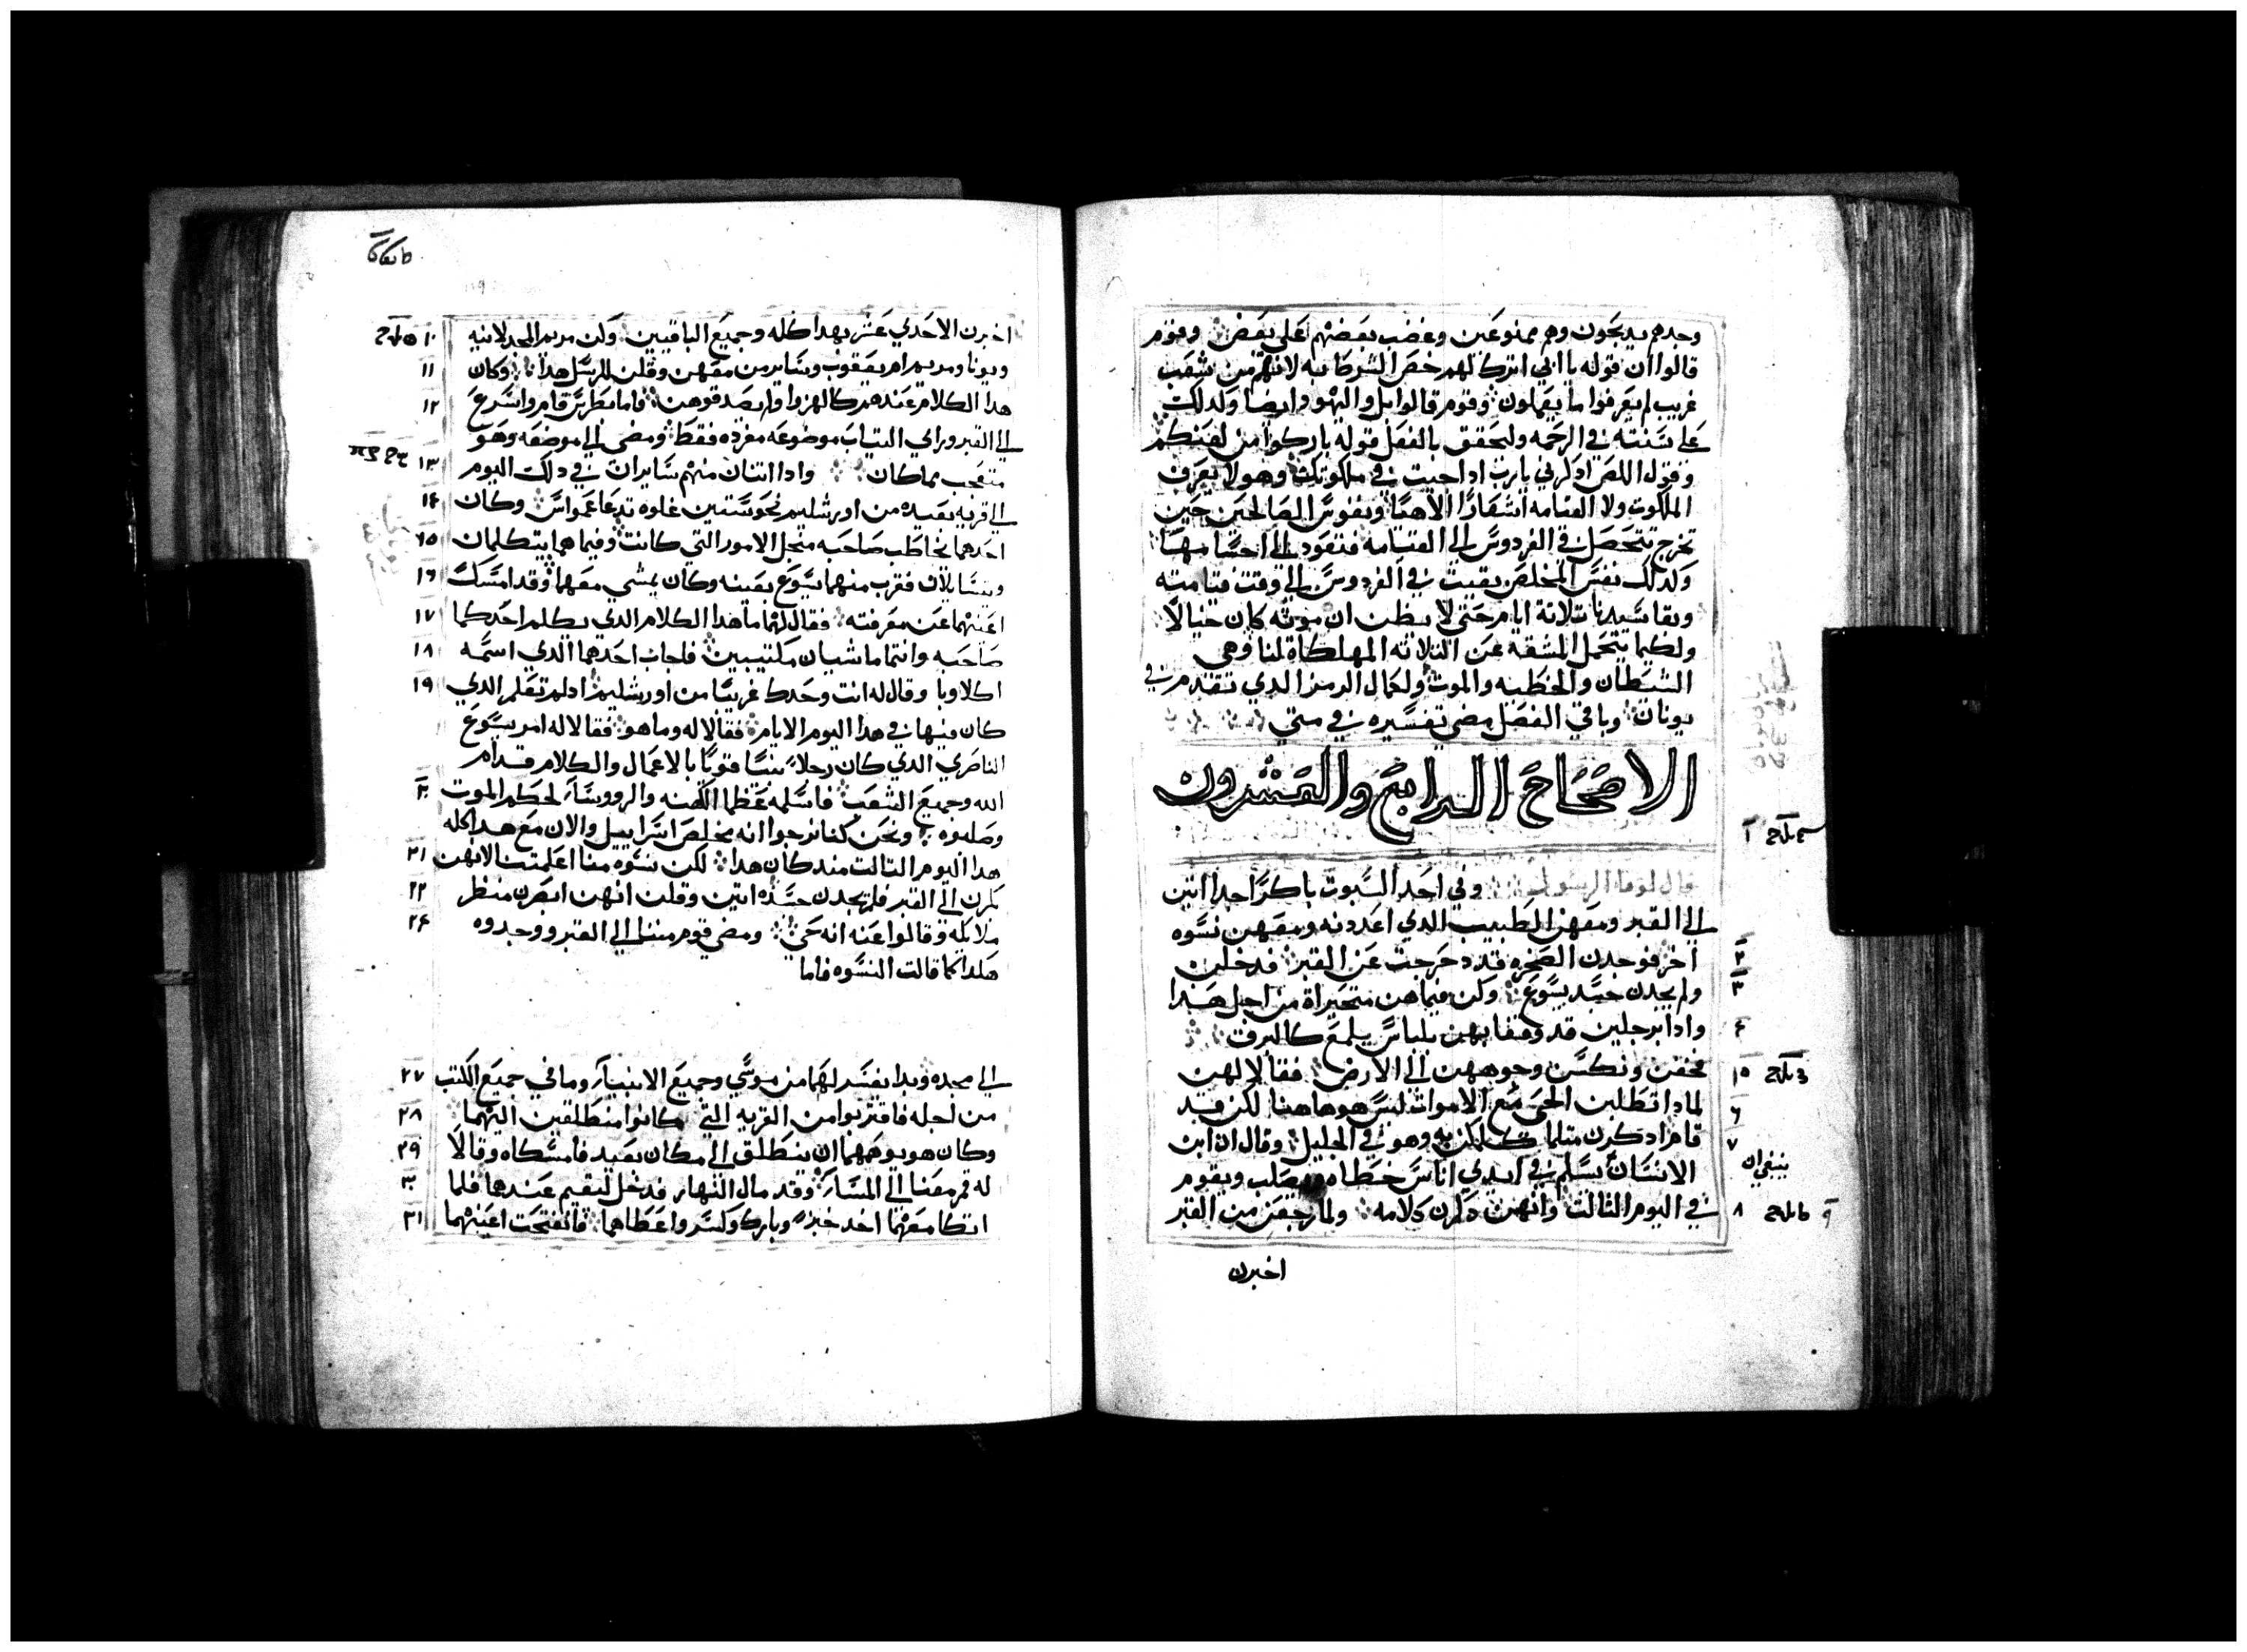 وجدهم يديحون وهم ممنوعين وغضب بعضهم على بعض وقوم
قالوا ان قوله يا ابي اترك لهم خص الشركا به لانهم من شعب
غريب لم يعرفوا ما يعملون وقوم قالوا بل واليهود ايضا وكدلك
على سنته في الرحمه وليحقق بالفعل قوله باركوا من لعنكم
وقول اللص ادكرني يارب ادا جيت في ملكوتك وهو لا يعرف
الملكوت ولا القيامه ونفوس الصالحين حين
تخرج تتحصل في الفردوس الى القيامه فتعود الى
وكدلك نفس المخلص بقيت في الفردوس الى وقت قيامته
وبقا سيدنا تلاتة ايام حتى لا يظن ان موته كان خيالا
ولكيما يتحمل المشقه عن التلاته المهلكاة لنا وهي
الشيطان والخطيه والموت ولكمال الرمز الدي تقدم في
يونان وباقي الفصل مضى تفسيره في متي
الاصحاح الرابع والعشرون
قال لوقا الرسول وفي احد السبوت باكرًا جدا اتين
الى القبر ومعهن الطيب الدي اعددنه ومعهن نسوه
اخر فوجدن الصخره قد دحرجت عن القبر فدخلن
ولم يجدن جسد يسوع وكن فيما هن متحيراة من اجل هدا
وادا برجلين قد وقفا بهن بلباس يلمع كالبرق
فخفن ونكسن وجوههن الى الارض فقالا لهن
لمادا تطلبن الحي مع الاموات ليس هو هاهنا لكن قد
قام ادكرن متلما كلمكن به وهو في الجليل وقال ان ابن
الانسان يسلم في ايدي اناس خطاه ويصلب ويقوم
في اليوم التالت وانهن دكرن كلامه ولما رجعن من القبر
اخبرن
١
٢
٣
٤
٥
٦
٧
٨
اخبرن الاحدي عشر بهدا كله وجميع الباقيين وكن مريم المجدلانيه
ويونا ومريم ام يعقوب وساير من معهن وقلن للرسل هدا وكان
هدا الكلام عندهم كالهزوا ولم يصدقوهن فاما بطرس قام واسرع
الى القبر وراي التياب موضوعه مفرده فقط ومضى الى موضعه وهو
متعجب مما كان وادا اتنان منهم سايران في دلك اليوم
الى قريه بعيده من اورشليم نحو ستين غلوه تدعا عمواس وكان
احدهما يخاطب صاحبه منجل الامور التي كانت وفيما هما يتكلمان
ويتسايلان فقرب منهما يسوع بعينه وكان يمشي معهما وقد امسك
اعينهما عن معرفته فقال لهما ما هدا الكلام الدي يكلم احدكما
صاحبه وانتما ماشيان مكتيبين فاجاب احدهما الدي اسمه
اكلاوبا وقال له انت وحدك غريبا من اورشليم اد لم تعلم الدي
كان فيها في هدا اليوم الايام فقال لهما وما هو فقالا له امر يسوع
الناصري الدي كان رجلا نبيا قويًا بالاعمال والكلام قدام
الله وجميع الشعب فاسلمه عظما الكهنه والروسا لحكم الموت
وصلبوه ونحن كنا نرجوا انه مخلص اسراييل والان مع هدا كله
هدا اليوم التالت مند كان هدا لكن نسوه منا اعلمتنا لانهن
بكرن الى القبر فلم يجدن جسده اتين وقلن انهن ابصرن منظر
ملايكه وقالوا عنه انه حي ومضى قوم مننا الى القبر ووجدوه
هكدا كما قالت النسوه فاما
الى مجده وبدا يفسر لهما من موسي وجميع الانبيا وما في جميع الكتب
من اجله فاقتربوا من القريه التي كانوا منطلقين اليها
وكان هو يوهمهما ان ينطلق الى مكان بعيد فامسكاه وقالا
له قم معنا الى المسا وقد مال النهار فدخل ليقيم عندهما فلما
اتكا معهما اخد خبزً وبارك وكسر واعطاهما فانفتحت اعينهما
١٠
١١
١٢
١٣
١٤
١٥
١٦
١٧
١٨
١٩
٢٠
٢١
٢٢
٢٤
٢٧
٢٨
٢٩
٣٠
٣١